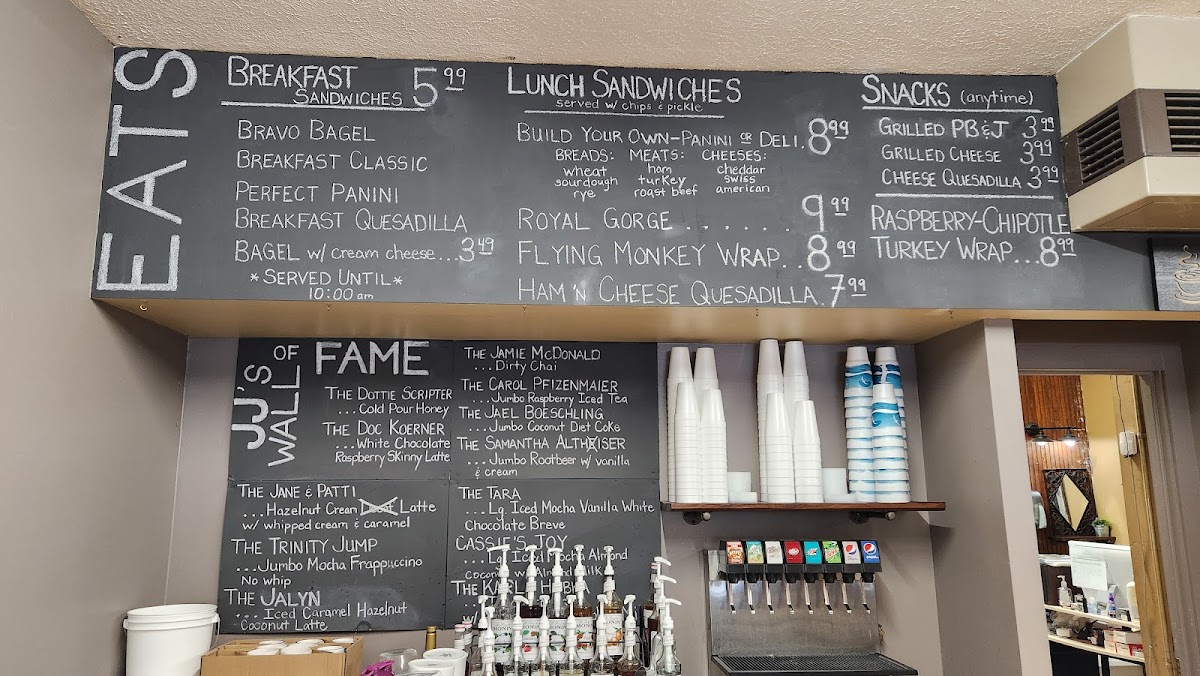 EATS
BREAKFAST
SANDWICHES 5.99
BRAVO BAGEL
BREAKFAST CLASSIC
PERFECT PANINI
BREAKFAST QUESADILLA
BAGEL w/ cream cheese...3.49
*SERVED UNTIL*
10:00 am
LUNCH SANDWICHES
served w/ chips & pickle
BUILD YOUR OWN-PANINI OR DELI. 8.99
BREADS: MEATS: CHEESES:
wheat ham cheddar
sourdough turkey swiss
rye roast beef american
ROYAL GORGE ....... 9.99
FLYING MONKEY WRAP.. 8.99
HAM 'N CHEESE QUESADILLA. 7.99
SNACKS (anytime)
GRILLED PB&J 3.99
GRILLED CHEESE 3.99
CHEESE QUESADILLA 3.99
RASPBERRY-CHIPOTLE
TURKEY WRAP...8.99
JJ'S
WALL
OF
FAME
THE DOTTIE SCRIPTER
...Cold Pour Honey
THE DOC KOERNER
...White Chocolate
Raspberry Skinny Latte
THE JAMIE MCDONALD
...Dirty Chai
THE CAROL PFIZENMAIER
...Jumbo Raspberry Iced Tea
THE JAEL BOESCHLING
...Jumbo Coconut Diet Coke
THE SAMANTHA ALTHEISER
...Jumbo Rootbeer w/ vanilla
& cream
THE JANE & PATTI
...Hazelnut Cream Latte
w/ whipped cream & caramel
THE TRINITY JUMP
...Jumbo Mocha Frappuccino
No whip
THE JALYN
...Iced Caramel Hazelnut
Coconut Latte
THE TARA
...Lg. Iced Mocha Vanilla White
Chocolate Breve
CASSIE'S JOY
...Lg. Iced Mocha Almond
THE
MONIN
pepsi